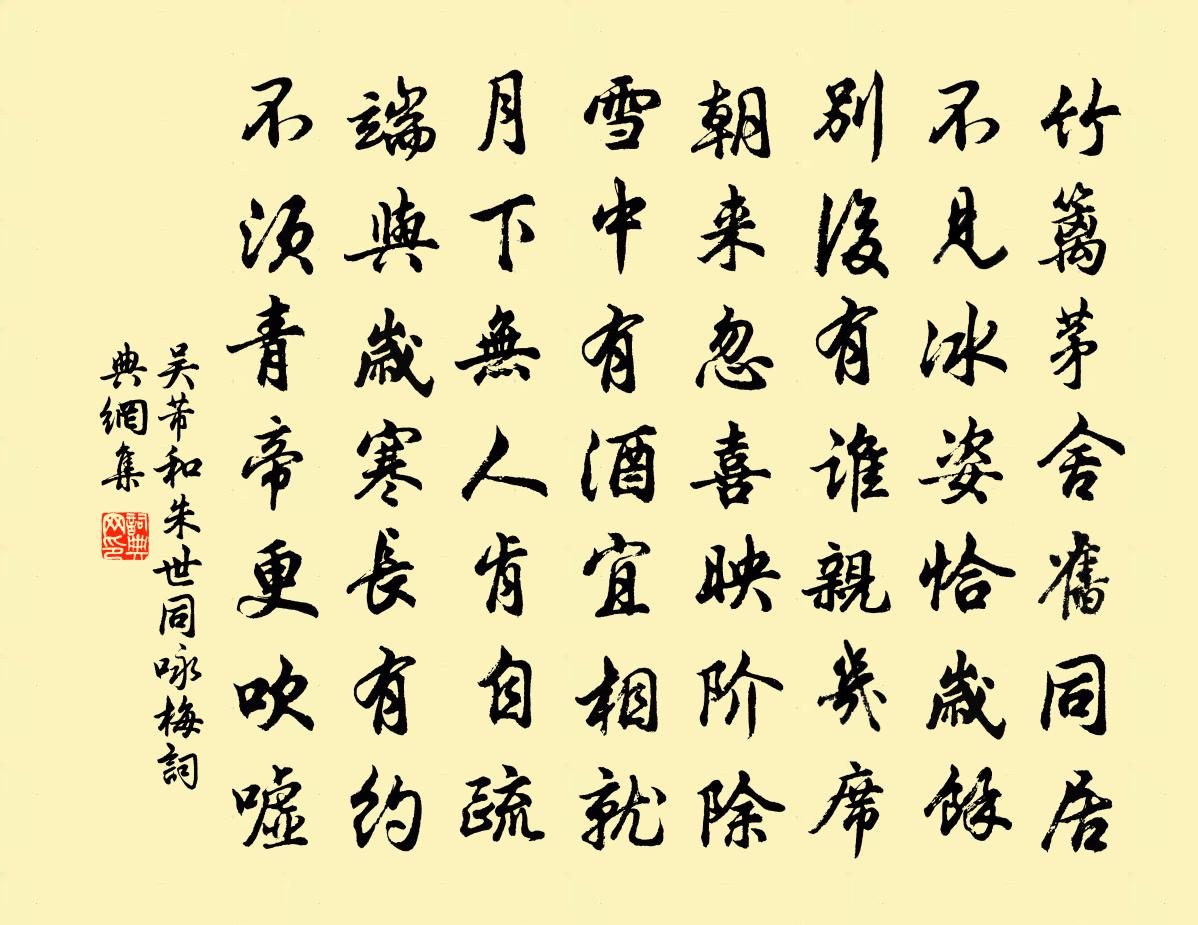 竹籬茅舍舊同居
不見冰姿恰歲餘
別後有誰親几席
朝来忽喜映阶除
雪中有酒宜相就
月下無人肯自疏
端與歲寒長有約
不須青帝更吹噓
吴芾和朱世同咏梅詞
典網集
詞典網印